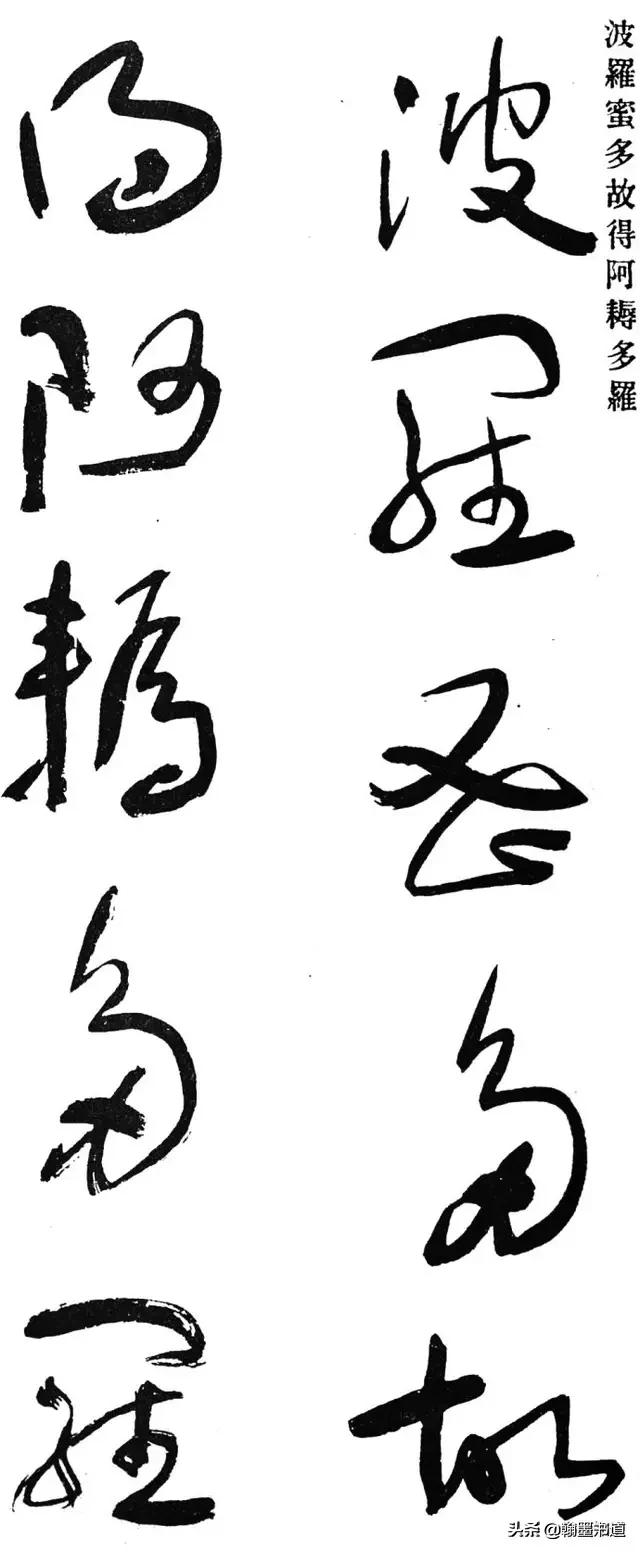 波羅蜜多故得阿耨多羅
波羅蜜多故
得阿耨多羅
头条 @翰墨知道